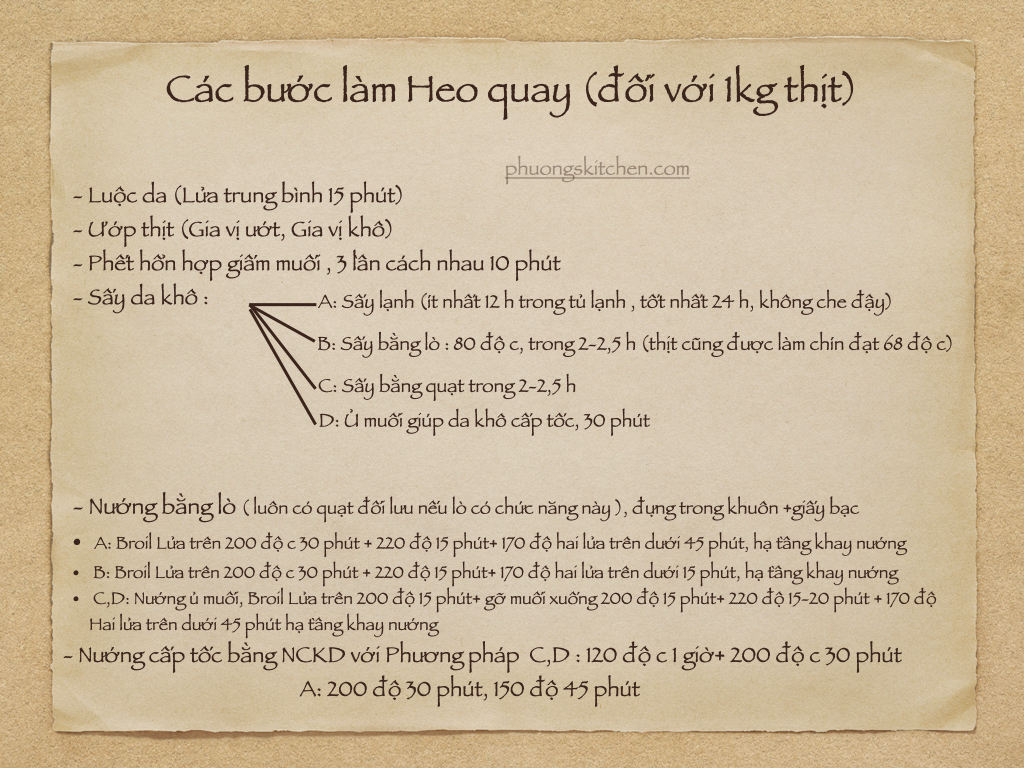 Các bước làm Heo quay (đối với 1kg thịt)
phuongskitchen.com
- Luộc da (Lửa trung bình 15 phút)
- Ướp thịt (Gia vị ướt, Gia vị khô)
- Phết hổn hợp giấm muối , 3 lần cách nhau 10 phút
- Sấy da khô :
A: Sấy lạnh (ít nhất 12 h trong tủ lạnh , tốt nhất 24 h, không che đậy)
B: Sấy bằng lò : 80 độ c, trong 2-2,5 h (thịt cũng được làm chín đạt 68 độ c)
C: Sấy bằng quạt trong 2-2,5 h
D: Ủ muối giúp da khô cấp tốc, 30 phút
- Nướng bằng lò ( luôn có quạt đối lưu nếu lò có chức năng này ) , đựng trong khuôn +giấy bạc
• A: Broil Lửa trên 200 độ c 30 phút + 220 độ 15 phút+ 170 độ hai lửa trên dưới 45 phút, hạ tầng khay nướng
• B: Broil Lửa trên 200 độ c 30 phút + 220 độ 15 phút+ 170 độ hai lửa trên dưới 15 phút, hạ tầng khay nướng
• C,D: Nướng ủ muối, Broil Lửa trên 200 độ 15 phút+ gỡ muối xuống 200 độ 15 phút+ 220 độ 15-20 phút + 170 độ
Hai lửa trên dưới 45 phút hạ tầng khay nướng
- Nướng cấp tốc bằng NCKD với Phương pháp C,D : 120 độ c 1 giờ+ 200 độ c 30 phút
A: 200 độ 30 phút, 150 độ 45 phút